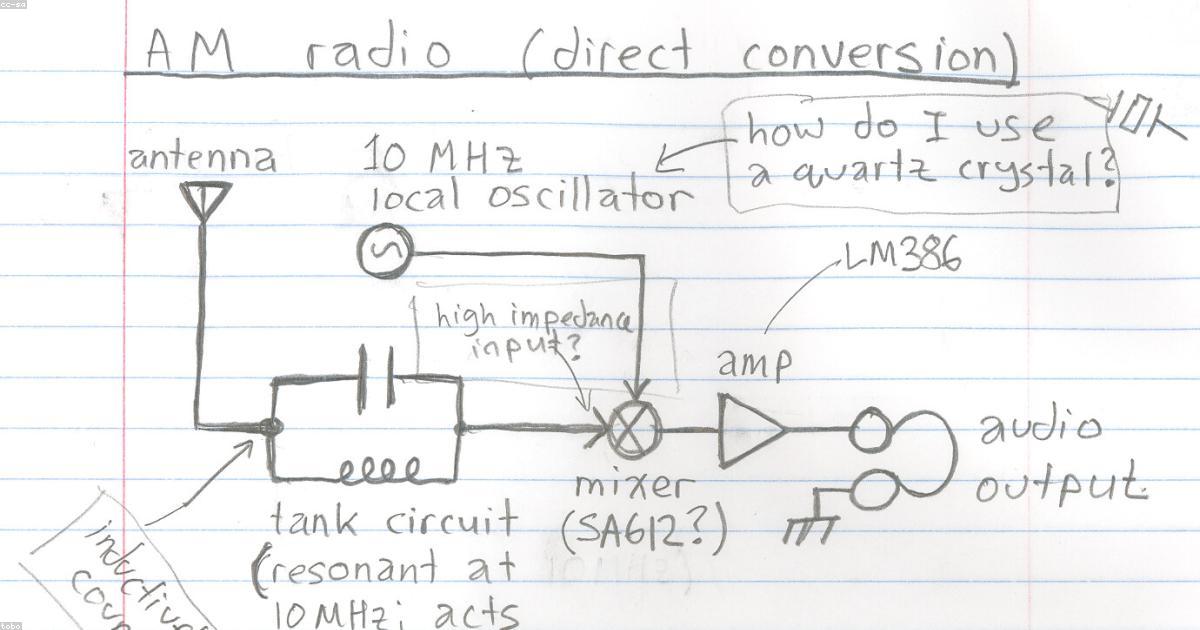 cc-sa
AM radio (direct conversion)
antenna
10 MHz
local oscillator
how do I use
a quartz crystal?
LM386
high impedance
input?
amp
audio
output
mixer
(SA612?)
tank circuit
(resonant at
10 MHz; acts
tobo